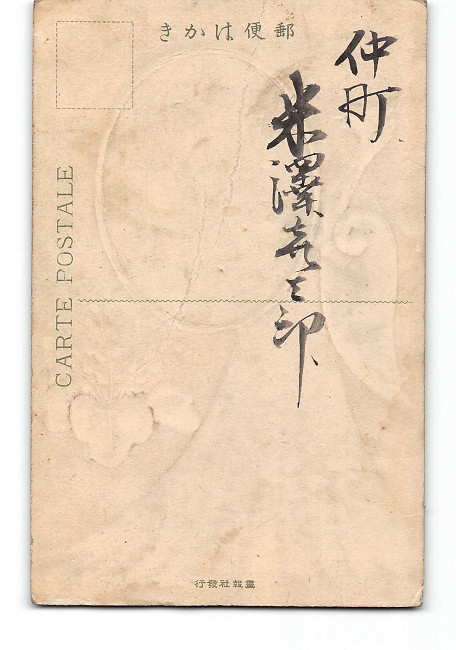 郵便はかき
仲町
米澤㐂之助
CARTE POSTALE
畫報社發行